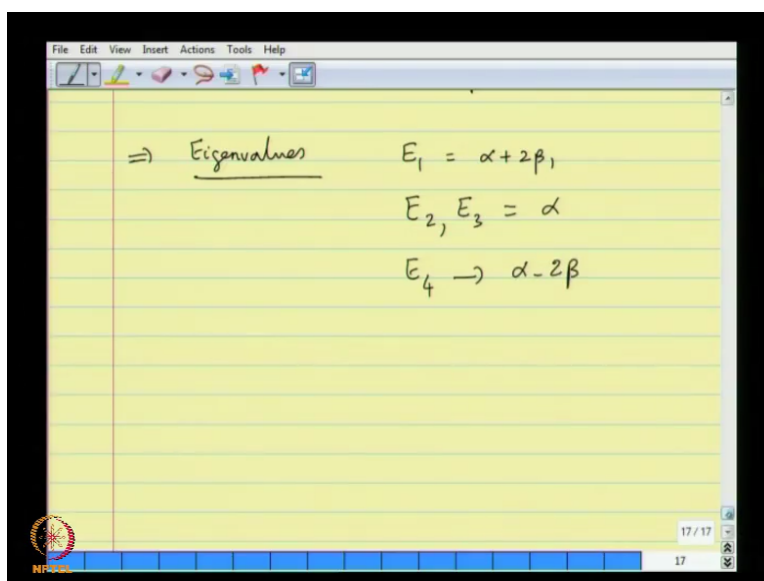 File Edit View Insert Actions Tools Help
⇒ Eigenvalues E₁ = α + 2β,
E₂, E₃ = α
E₄ → α - 2β
17 / 17
17
NPTEL